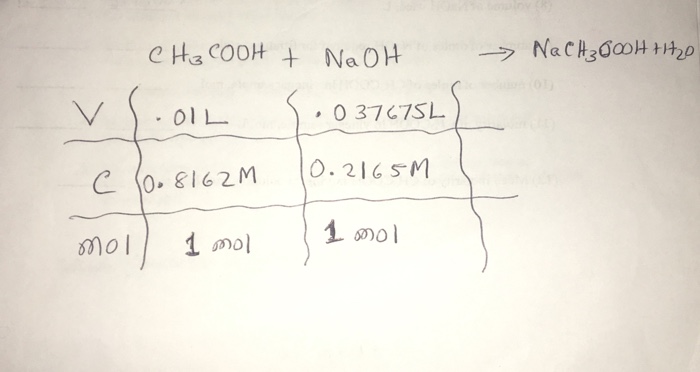 CH3COOH + NaOH → NaCH3COOH + H2O
V .01L .037675L
C 0.8162M 0.2165M
mol 1 mol 1 mol